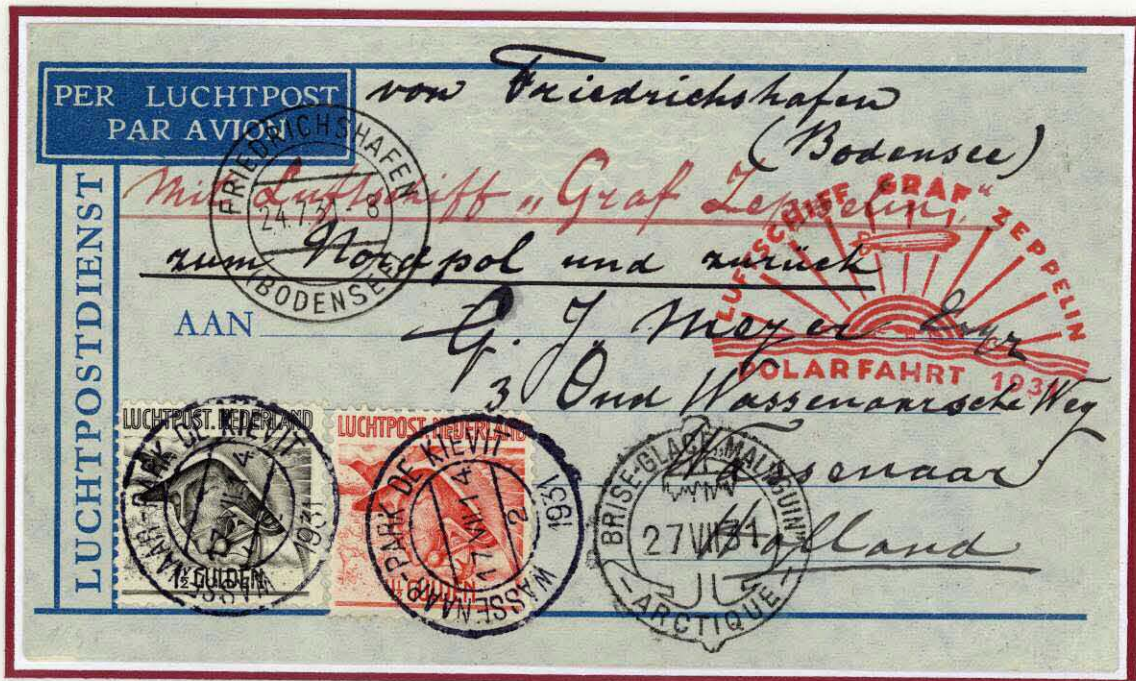 PER LUCHTPOST
PAR AVION
LUCHTPOSTDIENST
von Friedrichshafen
(Bodensee)
Mit Luftschiff „Graf Zeppelin"
zum Nordpol und zurück
FRIEDRICHSHAFEN
24.7.31. 8
(BODENSEE)
LUFTSCHIFF „GRAF ZEPPELIN"
POLARFAHRT 1931
AAN
G. J. Meyer
3 Oud Wassenaarsche Weg
Wassenaar
Holland
LUCHTPOST. NEDERLAND
1½ GULDEN
WASSENAAR-PARK DE KIEVIT
17 VII 14
1931
LUCHTPOST. NEDERLAND
GULDEN
WASSENAAR-PARK DE KIEVIT
17 VII 14
2
1931
BRISE-GLACE „MALYGUIN"
27 VII 31
ARCTIQUE